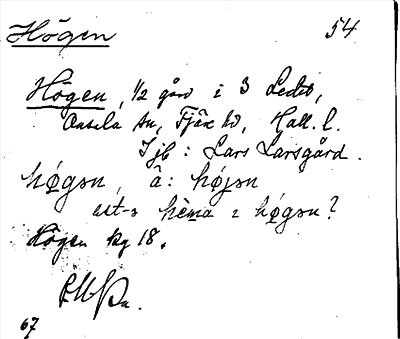 Högen
54
Högen, 1/2 gård i 3 Ledet,
Onsala sn, Fjäre hd, Hall. l.
I jb: Lars Larsgård.
høgən, â: højən
 hèma i høgən?
Högen kg 18.
67